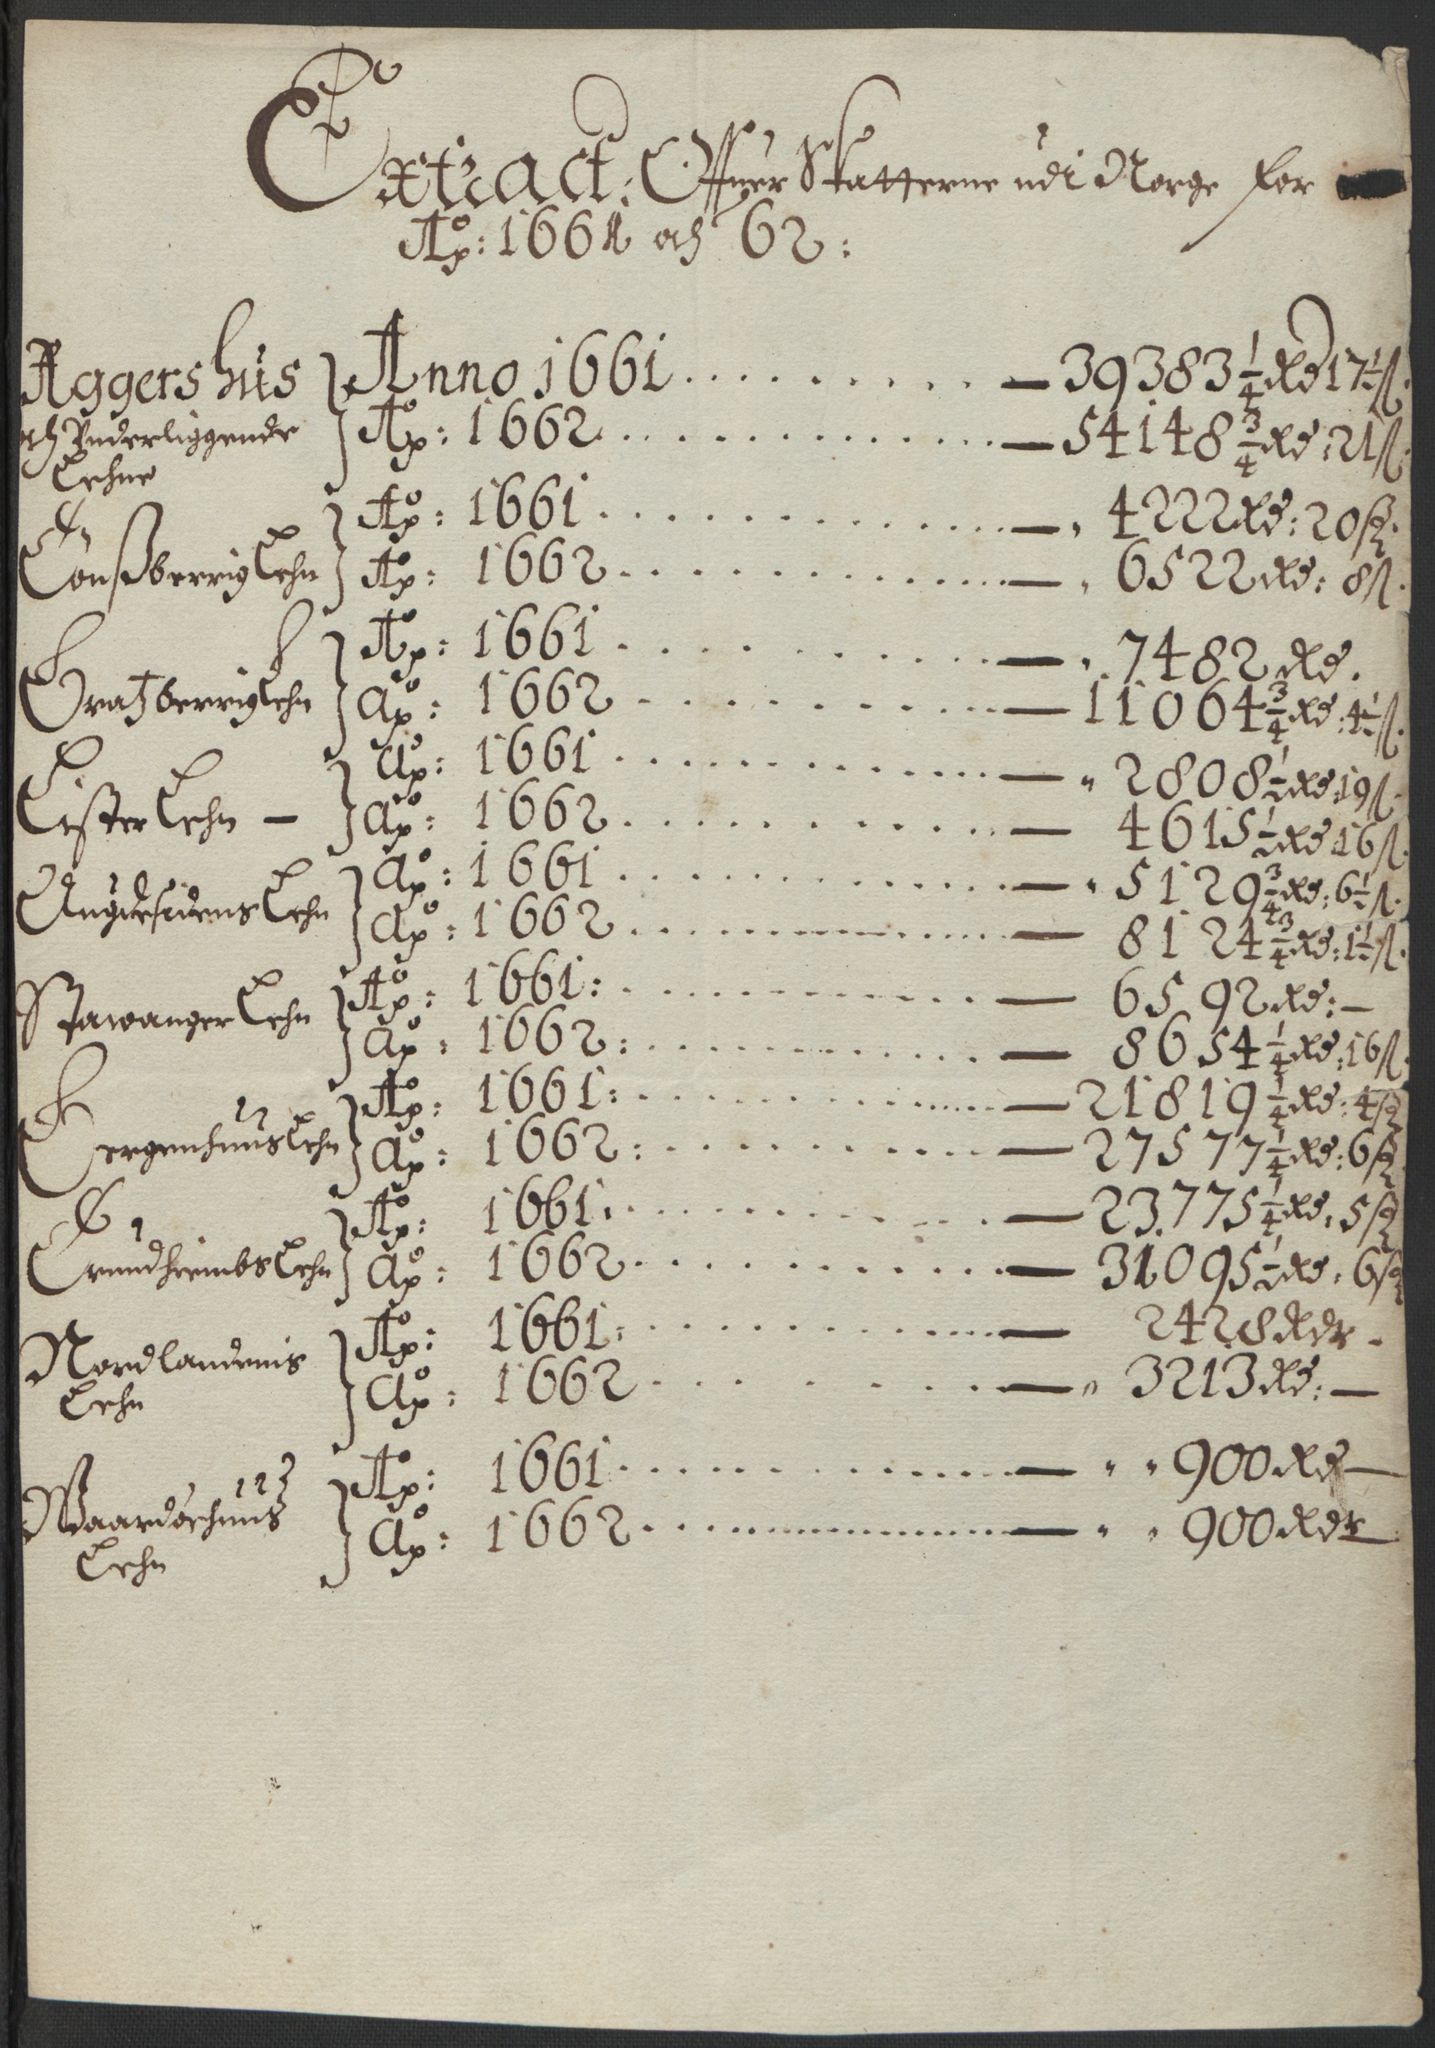 Extract: Offuer Skatterne udi Norge for
Ao: 1661 och 62:
Aggershuus Anno 1661 — 39383 1/4 Rd 17 1/2 ß.
och Underliggende Lehne Ao: 1662 — 54148 3/4 Rd: 21 ß.
Tønßberrig Lehn Ao: 1661 — 4222 Rd: 20 ß
Ao: 1662 — 6522 Rd: 8 ß.
Bratzberrig Lehn Ao: 1661 — 7482 Rd.
Ao: 1662 — 11064 3/4 Rd: 4 1/2 ß.
Lister Lehn — Ao: 1661 — 2808 1/2 Rd: 19 ß.
Ao: 1662 — 4615 1/2 Rd 16 ß.
Augdesidens Lehn Ao: 1661 — 5129 3/4 Rd: 6 1/2 ß.
Ao: 1662 — 8124 3/4 Rd: 1 1/2 ß.
Stawanger Lehn Ao: 1661: — 6592 Rd: —
Ao: 1662: — 8654 1/4 Rd: 16 ß.
Bergenhuus Lehn Ao: 1661: — 21819 1/4 Rd: 4 ß
Ao: 1662: — 27577 1/4 Rd: 6 ß
Trundhiembs Lehn Ao: 1661: — 23775 1/4 Rd: 5 ß
Ao: 1662 — 31095 1/2 Rd: 6 ß
Nordlandenis Lehn Ao: 1661: — 2428 Rdr —
Ao: 1662 — 3213 Rd: —
Waardøehuus Lehn Ao: 1661 — 900 Rd —
Ao: 1662 — 900 Rdr